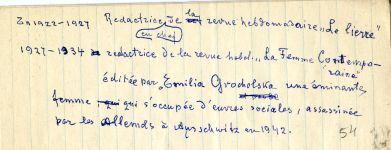 En 1922-1927 Redactrice de la revue hebdomadaire „Le lierre"
en chef
1927-1934 redactrice de la revue hebd. „La Femme Contempo-
raine"
éditée par Emilia Grocholska une éminante
femme qui s'occupée d'euvres sociales, assassinée
par les Allemds à Auschwitz en 1942.
54